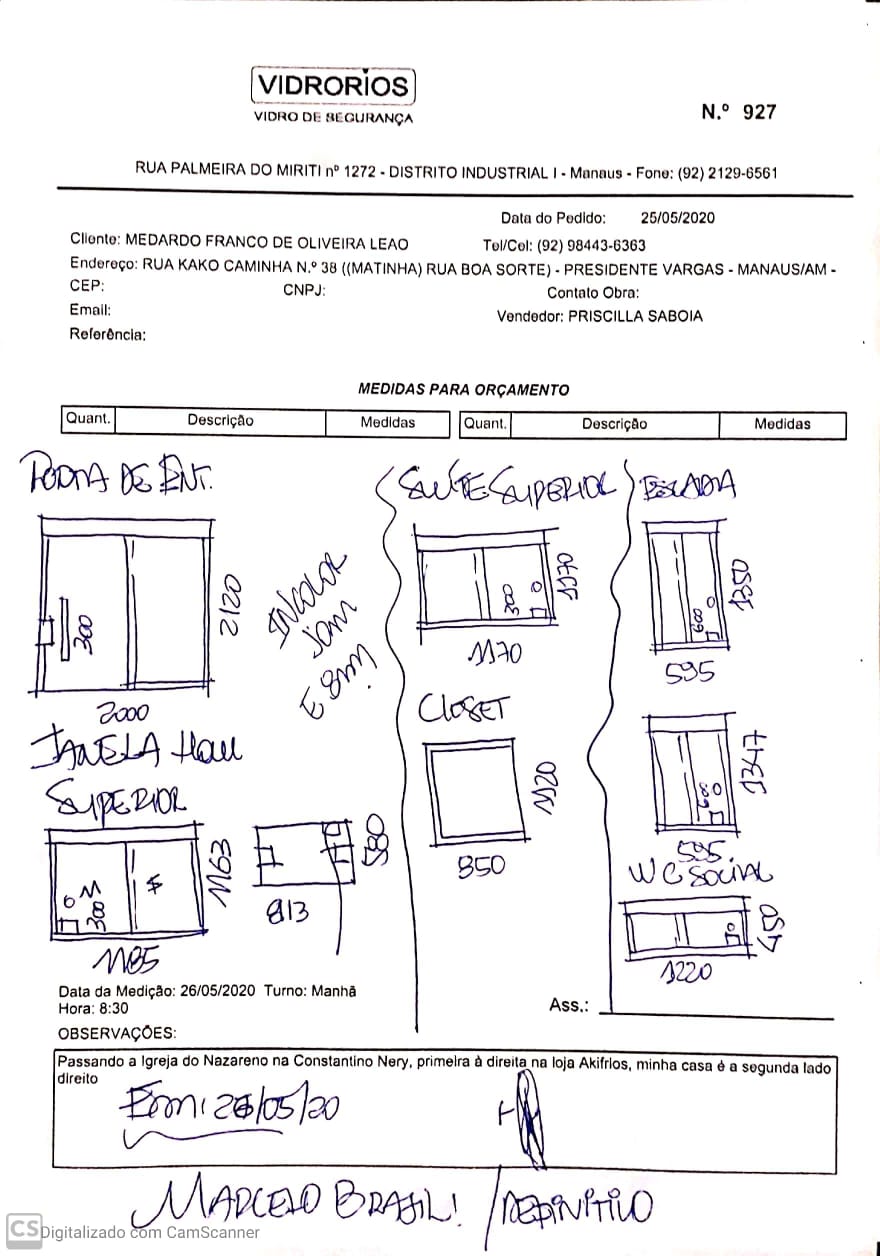 VIDRORIOS
VIDRO DE SEGURANÇA
N.º 927
RUA PALMEIRA DO MIRITI nº 1272 - DISTRITO INDUSTRIAL I - Manaus - Fone: (92) 2129-6561
Data do Pedido: 25/05/2020
Cliente: MEDARDO FRANCO DE OLIVEIRA LEAO
Tel/Cel: (92) 98443-6363
Endereço: RUA KAKO CAMINHA N.º 38 ((MATINHA) RUA BOA SORTE) - PRESIDENTE VARGAS - MANAUS/AM -
CEP:
CNPJ:
Contato Obra:
Email:
Vendedor: PRISCILLA SABOIA
Referência:
MEDIDAS PARA ORÇAMENTO
Quant. Descrição Medidas Quant. Descrição Medidas
PORTA DE ENT.
300
2120
2000
INCOLOR
E 8mm
JANELA Hall
SUPERIOR
300
1163
1185
580
813
SUÍTE SUPERIOR
300
1170
1170
CLOSET
1120
850
ESCADA
600
1350
595
600
1347
595.
WC SOCIAL
450
1220
Data da Medição: 26/05/2020 Turno: Manhã
Hora: 8:30
Ass.:
OBSERVAÇÕES:
Passando a Igreja do Nazareno na Constantino Nery, primeira à direita na loja Akifrios, minha casa é a segunda lado
direito
Em: 26/05/20
MARCELO BRASIL! / DEFINITIVO
CS Digitalizado com CamScanner